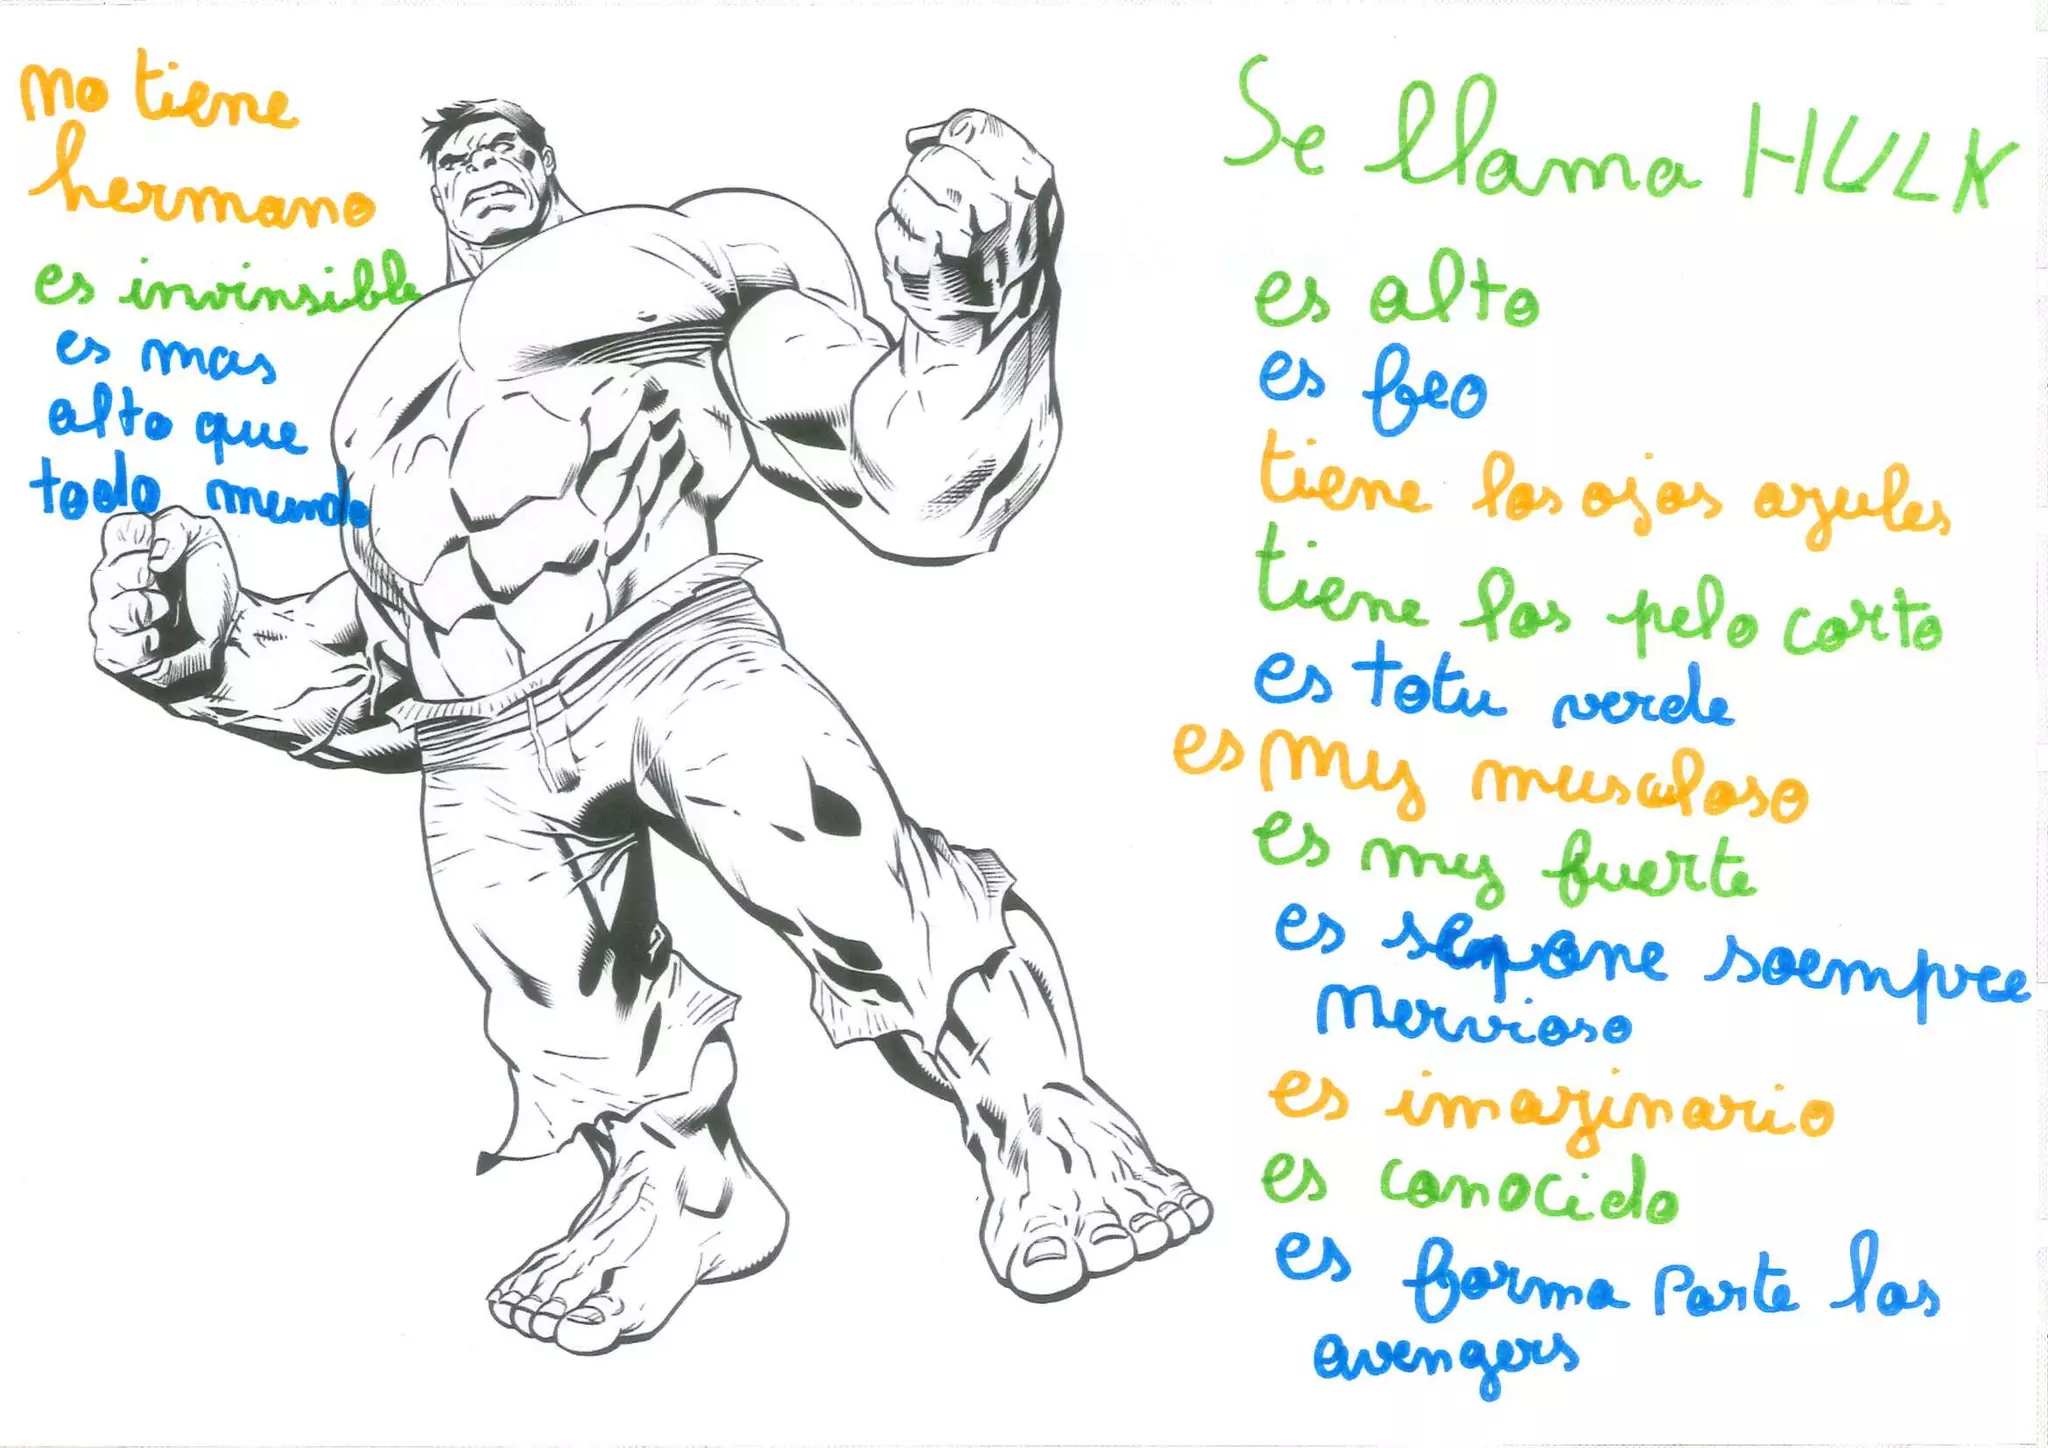 no tiene
hermano
es invinsible
es mas
alto que
todo mundo
Se llama HULK
es alto
es feo
tiene los ojos azules
tiene los pelo corto
es totu verde
es muy musculoso
es muy fuerte
es soempre
nervioso
es imazinario
es conocido
es forma parte los
avengers